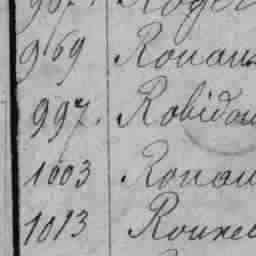 969 Rouau
997. Robidou
1003 Rouau
1013 Rouxel